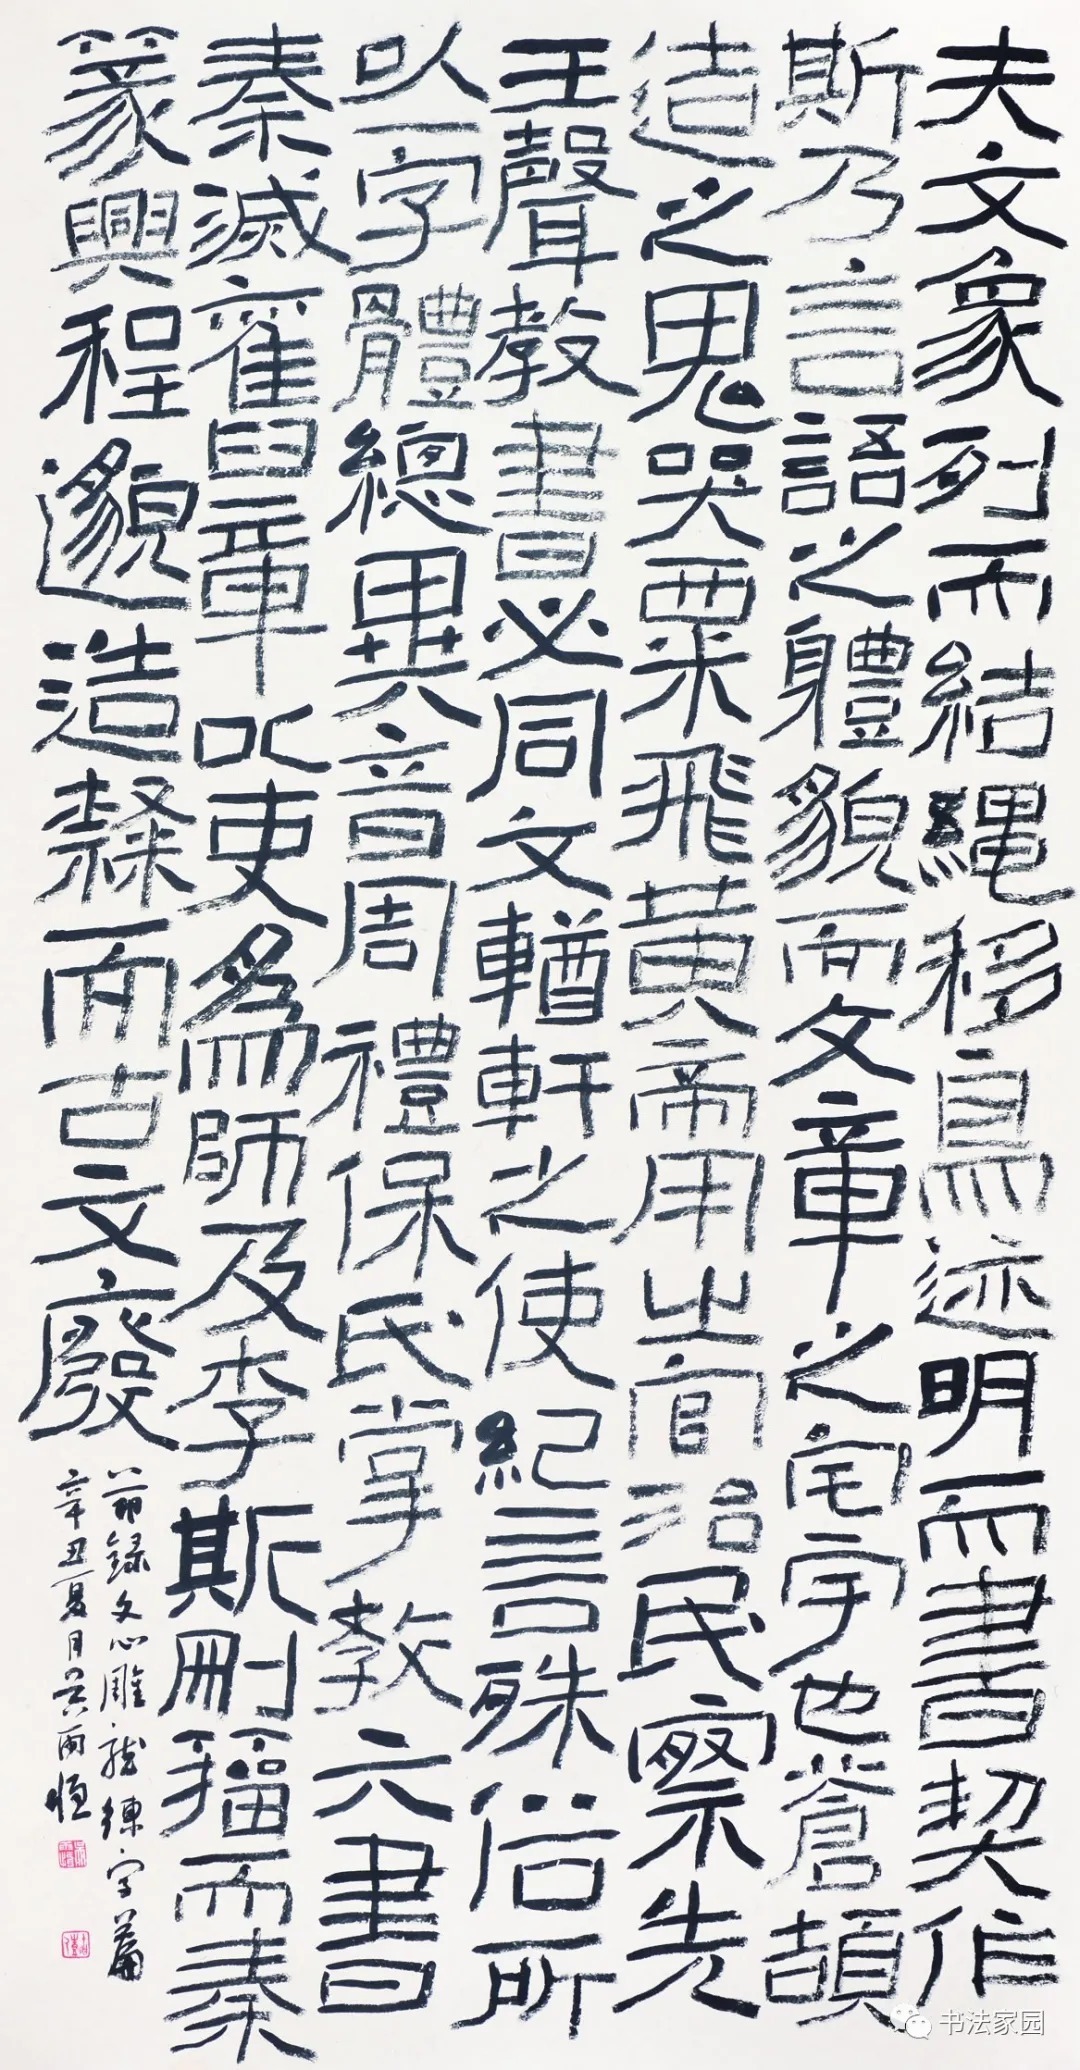 夫文象列而結繩移鳥迹明而書契作
斯乃言語之軆貌而文章之宅宇也蒼頡
造之鬼哭粟飛黄帝用之官治民察先
王聲教書必同文輶軒之使紀言殊俗所
以一字體總異音周禮保氏掌教六書
秦滅舊章以吏為師及李斯刪籀而秦
篆興程邈造隸而古文廢
節錄文心雕龍練字篇
辛丑夏月吴雨恒
书法家园